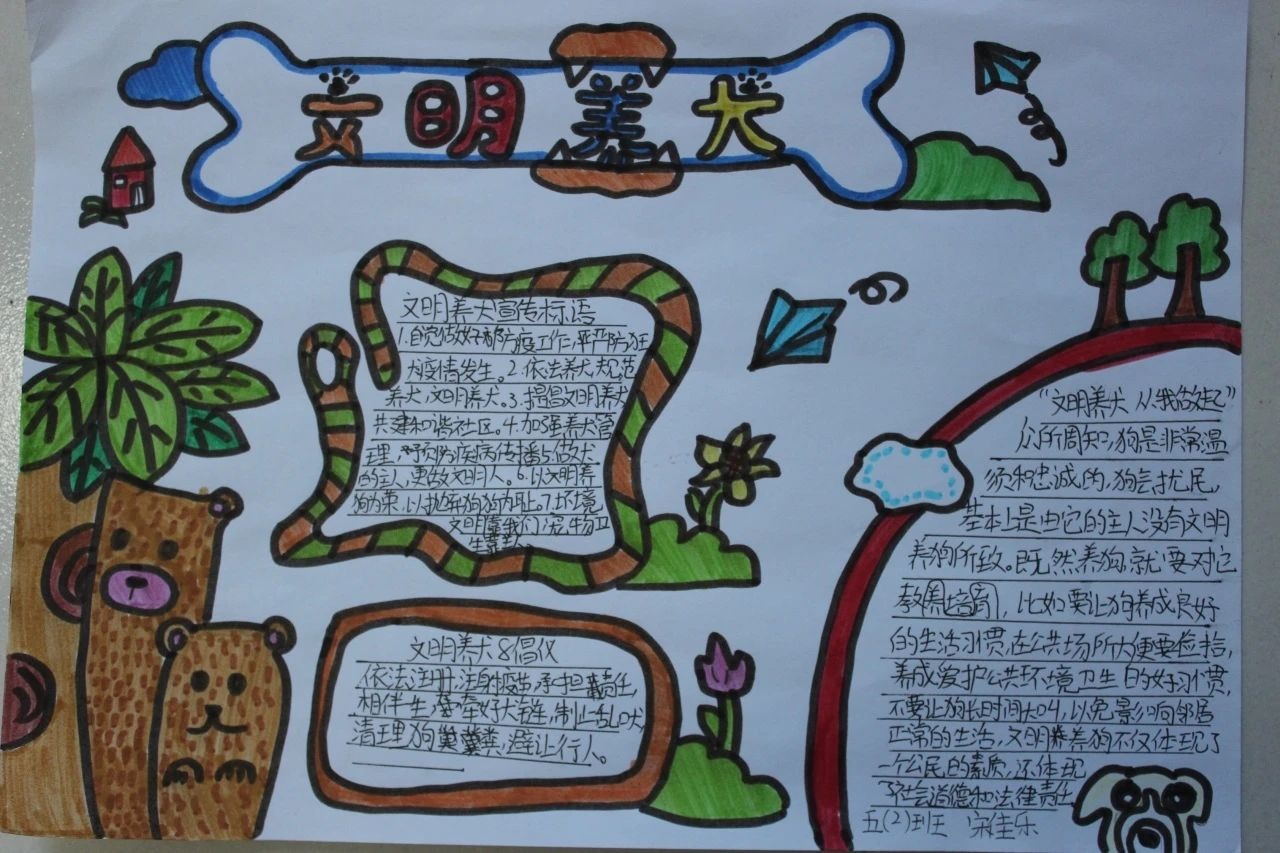 文明养犬
文明养犬宣传标语
1.自觉做好防疫工作,严防狂
犬疫情发生。2.依法养犬,规范
养犬,文明养犬。3.提倡文明养犬
共建和谐社区。4.加强养犬管
理,预防疾病传播5.做犬
的主人,更做文明人。6.以文明养
狗为荣,以抛弃狗狗为耻。7.环境
文明靠我们,宠物卫
生靠
文明养犬8倡仪
依法注册,注射疫苗,承担责任,
相伴生,牵好犬链,制止乱吠
清理狗粪,避让行人。
“文明养犬 从我做起”
众所周知,狗是非常温
须和忠诚的,狗会扰民,
基本上是由它的主人没有文明
养狗所致。既然养狗,就要对它
教周培周,比如要让狗养成良好
的生活习惯,在公共场所大便要检拾,
养成爱护公共环境卫生的好习惯,
不要让狗长时间大叫,以免影响邻居
正常的生活,文明养狗不仅体现了
一个公民的素质,还体现
了社会道德和法律责任
五(2)班 宋佳乐